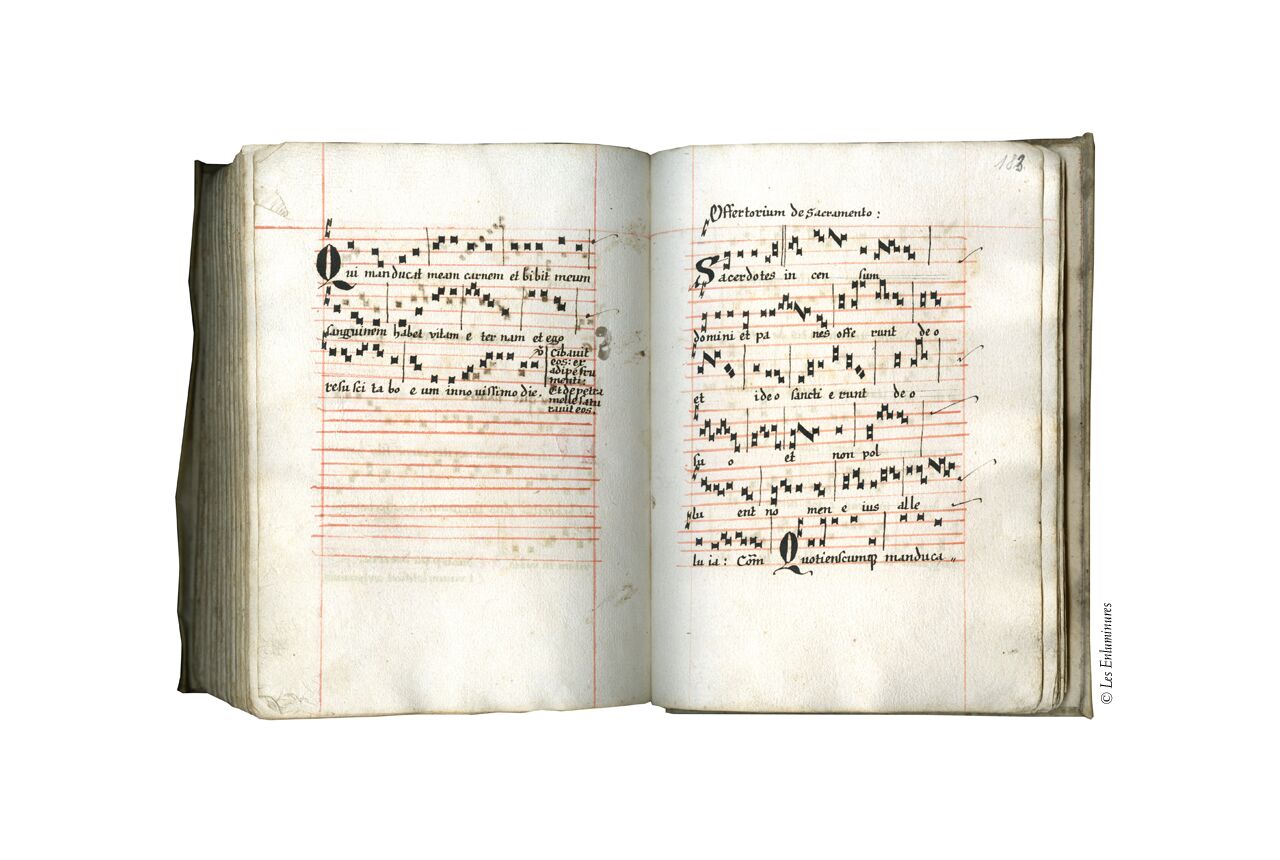 Qui manducat meam carnem et bibit meum
sanguinem habet vitam e ter nam et ego
resu sci ta bo e um inno uissimo die. v̄ Cibauit
eos: ex
adipe fru
menti:
Et de petra
melle satu
rauit eos.
183
Offertorium de Sacramento:
Sacerdotes in cen sum
domini et pa nes offe runt de o
et ideo sancti e runt de o
su o et non pol
lu ent no men e ius alle
lu ia: Com̄ Quotienscumq manduca„
© Les Enluminures